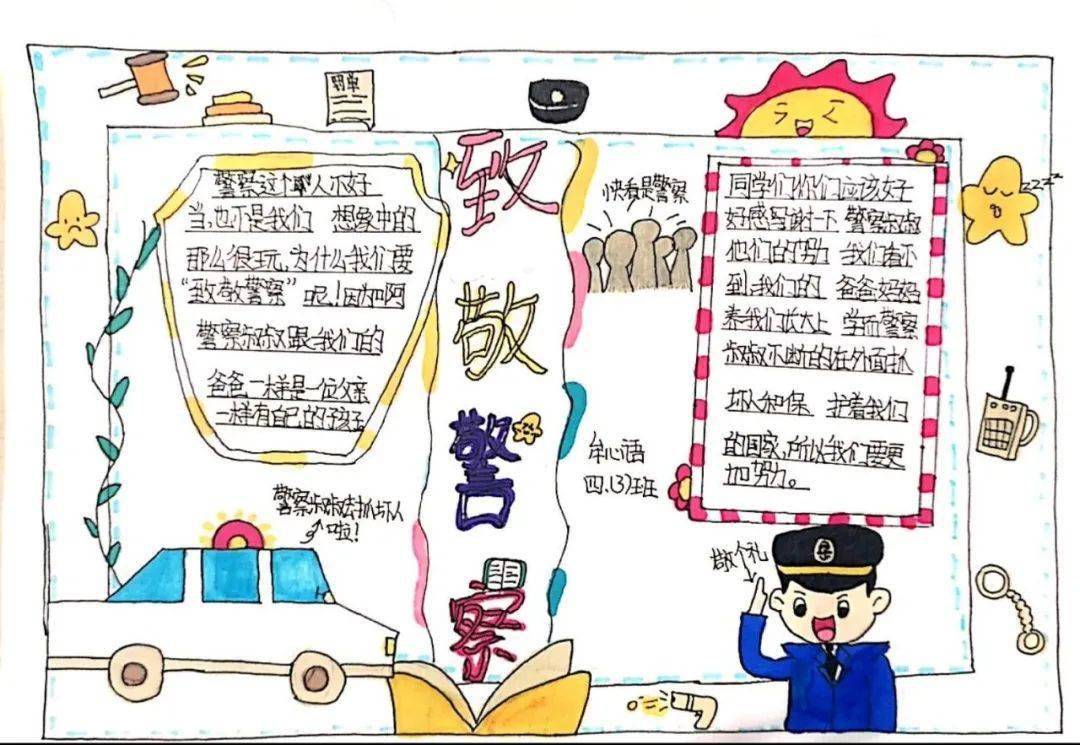 罚单
警察这个人不好
当,也不是我们 想象中的
那么很玩,为什么我们要
“致敬警察”呢!因
警察叔叔跟我们的
爸爸一样是一位父亲
一样有自己的孩子
致
敬
警
察
快看是警察
同学们你们应该好
好感谢一下 警察叔叔
他们的努力 我们看不
到,我们的 爸爸妈妈
养我们长大上 学而警察
叔叔不断的在外面抓
坏人和保 护着我们
的国家,所以我们要更
加努力。
zzzz
牟心语
四.(3)班
警察叔叔去抓坏人
啦!
敬个礼